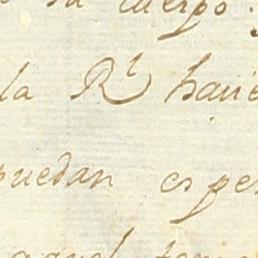 su cuerpo.
la Rl havie
puedan espe
aquel